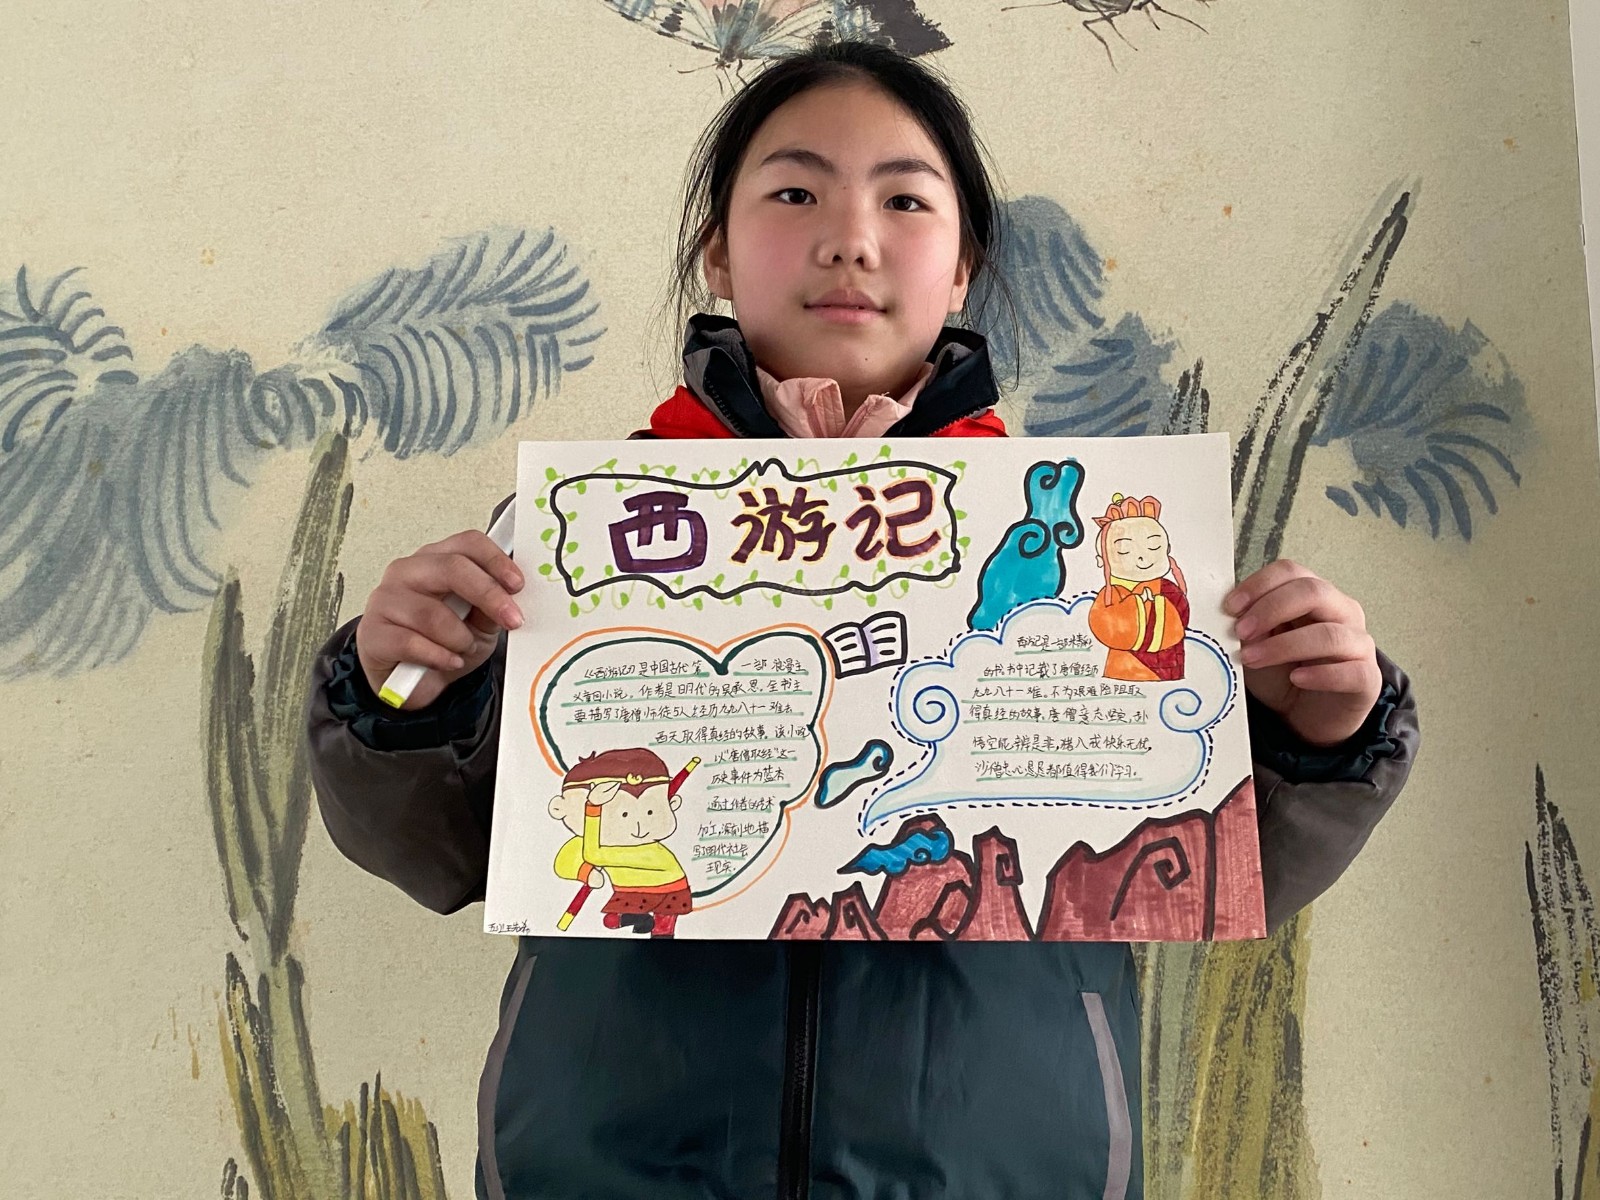 西游记
《西游记》是中国古代第一部浪漫主
义章回小说。作者是明代的吴承恩。全书主
要描写了唐僧师徒5人经历九九八十一难去
西天取得真经的故事。该小说
以"唐僧取经"这一
历史事件为蓝本
通过作者的艺术
加工,深刻地描
写了明代社会
现实。
西游记是一部精彩
的书。书中记载了唐僧经历
九九八十一难。不为艰难险阻取
得真经的故事。唐僧意志坚定,孙
悟空能辨是非,猪八戒快乐无忧,
沙僧忠心恳恳都值得我们学习。